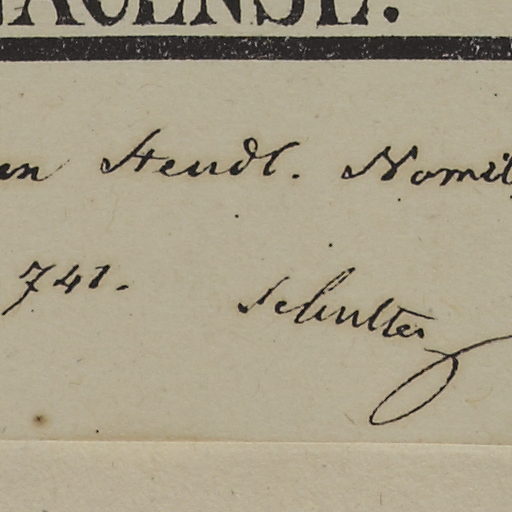 ACENSE.
Steudl. Nomit
741. Schultes